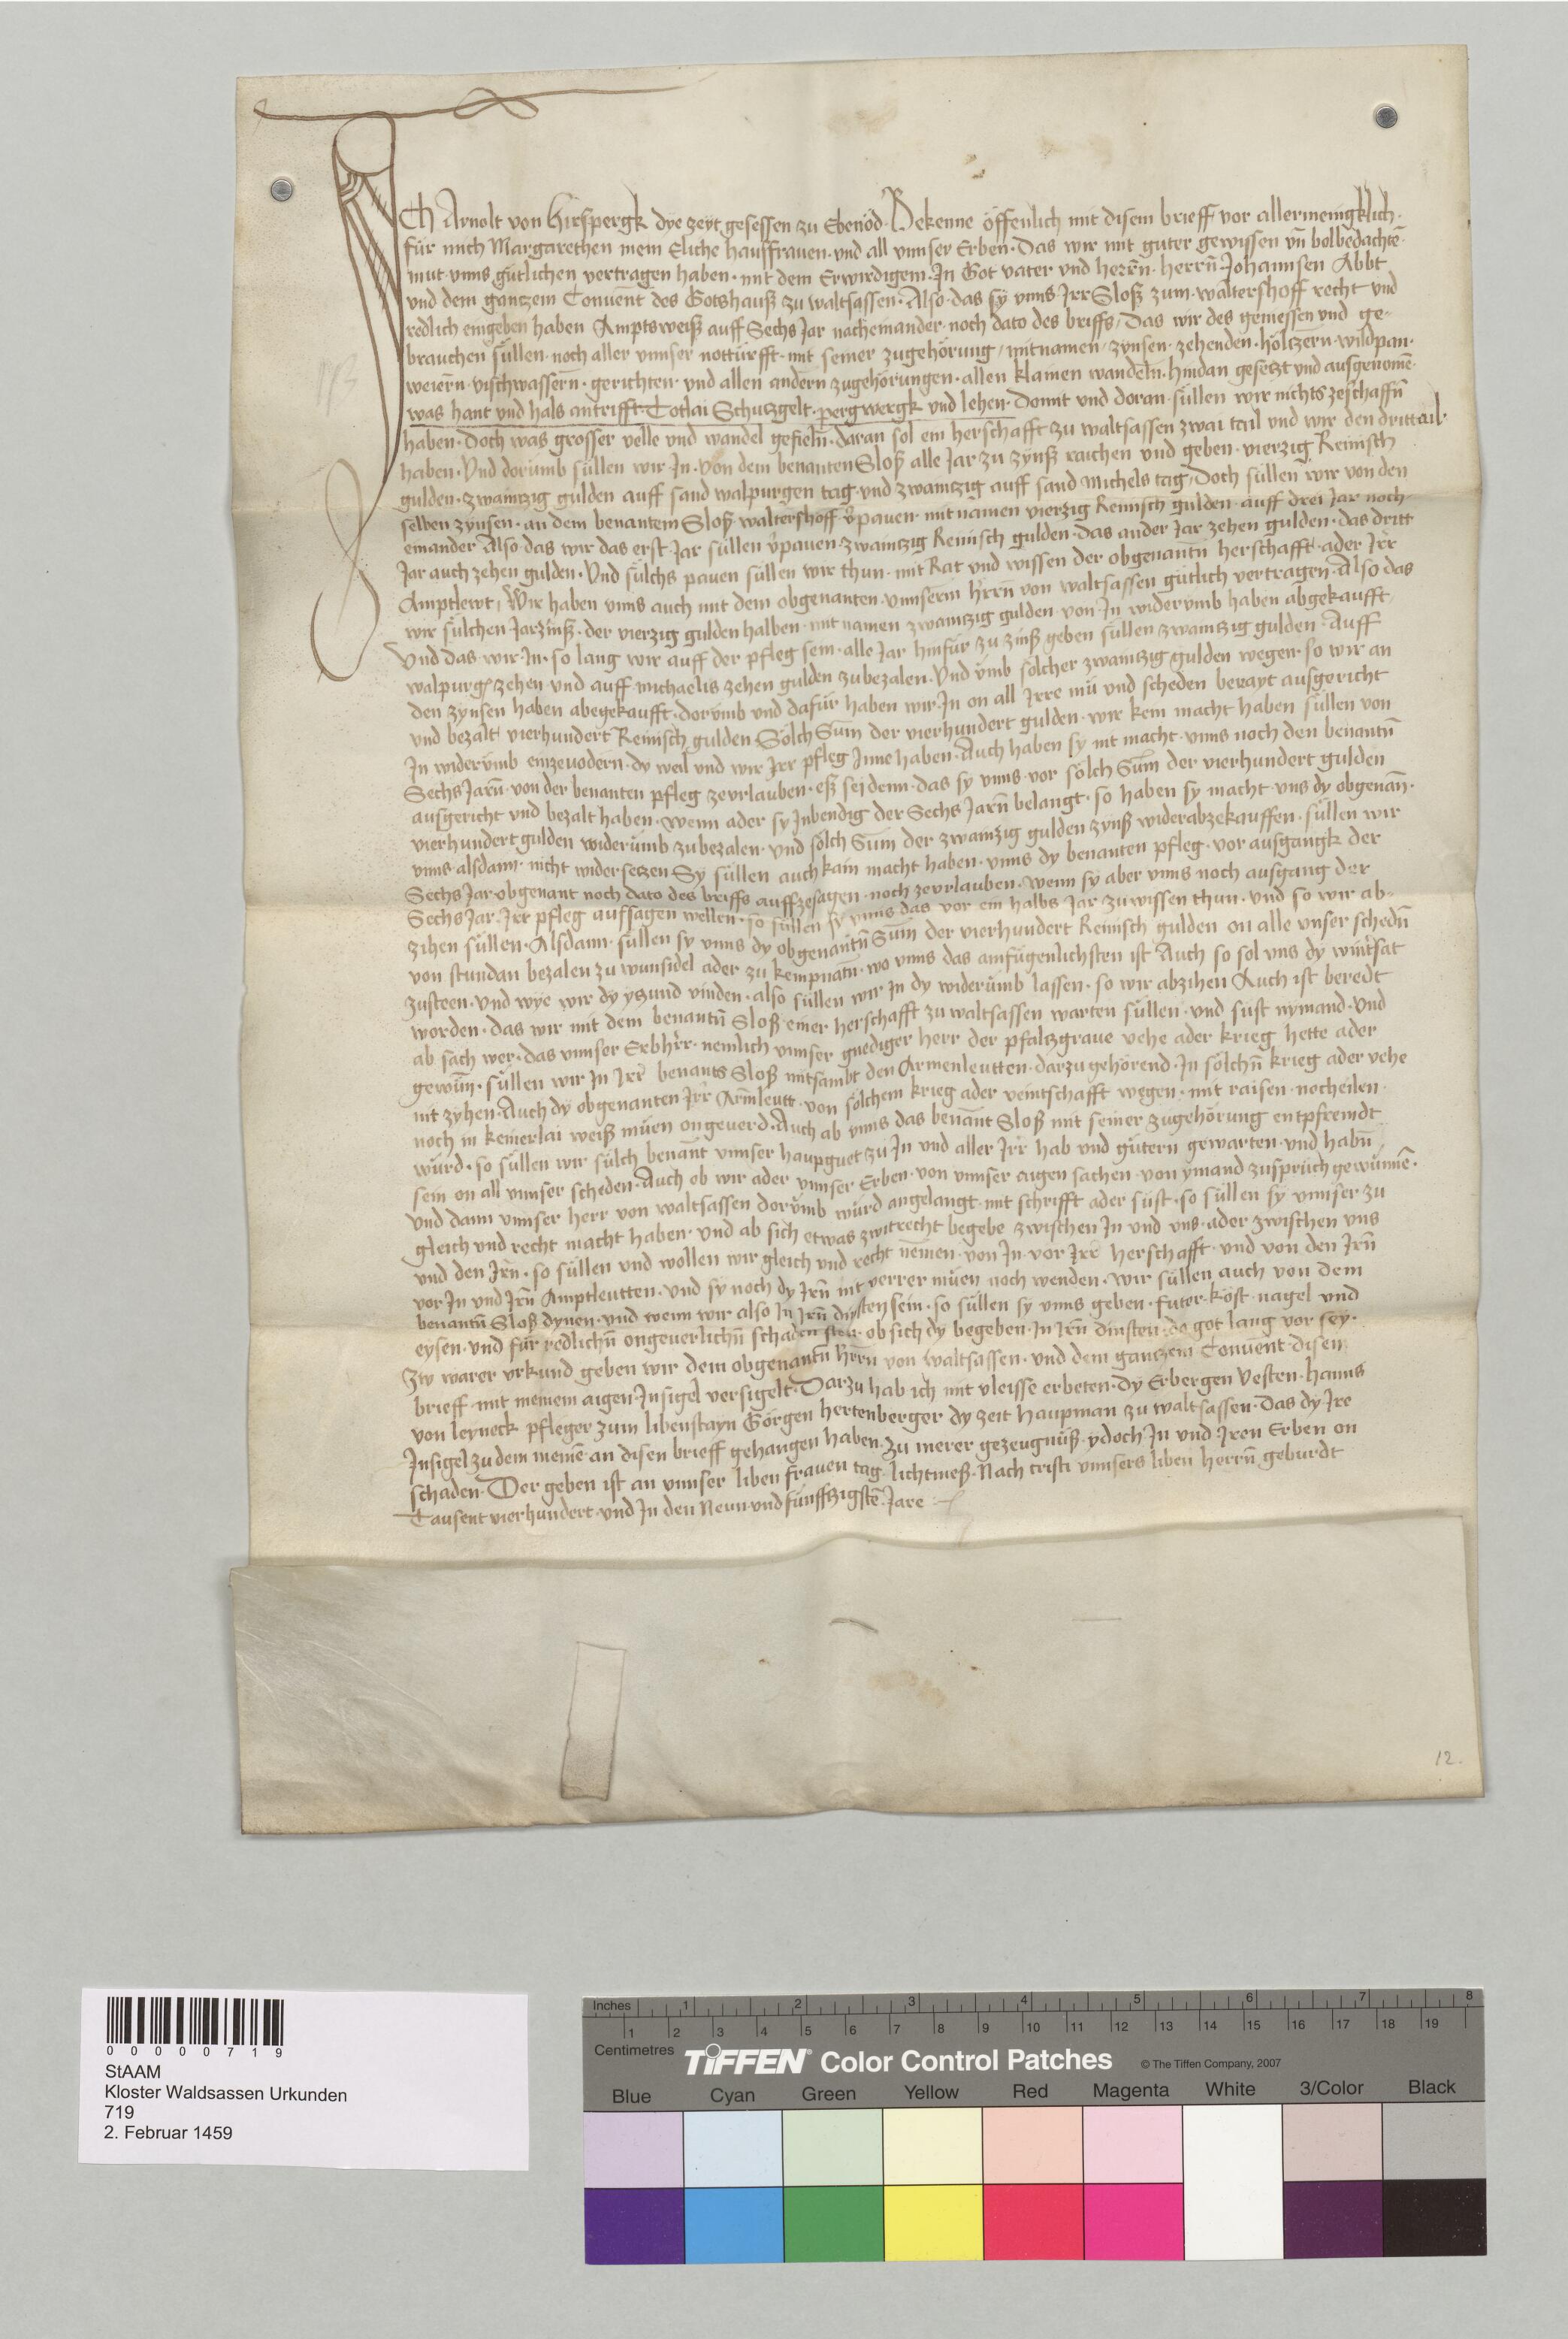 ICh Arnolt von Hirspergk dye zeyt gesessen zu Ebenöd · Bekenne öffenlich mit disem brieff vor allermeingklich ·
für mich Margarethen mein Eliche hausfrauen · vnd all vnnser Erben · Das wir mit guter gewyssen vn̄ bolbedachtē ·
mut vnns gütlichen vertragen haben · mit dem Erwirdigem · In Got vater vnd herrn̄ · herrn̄ · Johannsen Abbt
vnd dem gantzem Conuent des Gotshauß zu waltsassen · Also · das sy vnns Irr Sloß zum · waltershoff recht vnd
redlich eingeben haben Amptsweiß auff Sechs Jar nacheinander · noch dato des briffs / Das wir des geniessen vnd ge-
brauchen süllen · noch aller vnnser notturfft · mit seiner zugehörung / mitnamen / zynsen · zehenden · höltzern · wildpan ·
weiern · vischwassern · gerichten · vnd allen andern zugehörungen · allen klainen wandeln · hindan gesetzt vnd ausgenomē ·
was hant vnd hals antrifft · Totlai Schutzgelt · pergwergk vnd lehen · Domit vnd doran · süllen wir nichts zeschaffn̄
haben · Doch was grosser velle vnd wandel gefieln̄ · daran sol ein herschafft zu waltsassen zwai tail vnd wir den drittail
haben · Vnd dorümb süllen wir In · von dem benanten Sloß alle Jar zu zynß raichen vnd geben · vierzig Reinisch
gulden · zwaintzig gulden auff sand walpurgen tag · vnd zwaintzig auff sand Michels tag / Doch süllen wir von den
selben zynsen · an dem benantem Sloß waltershoff v̄pauen · mit namen vierzig Reinisch gulden · auff drei Jar noch
einander Also · das wir das erst Jar süllen v̄pauen · zwaintzig Reinisch gulden · das ander Jar zehen gulden · das dritt
Jar auch zehen gulden · Vnd sülchs pauen süllen wir thun · mit Rat vnd wissen der obgenantn̄ herschafft · ader Irr
Amptlewt / Wir haben vnns auch mit dem obgenanten · vnnserm hr̄rn̄ von waltsassen gütlich vertragen · Also das
wir sülchen Jarzinß · der vierzig gulden halben · mit namen zwaintzig gulden · von In widervmb haben abgekaufft /
Vnd das · wir In · so lang wir auff der pfleg sein · alle Jar hinfür zu zinß geben süllen zwaintzig gulden · Auff
walpurg zehen · vnd auff michaelis zehen gulden zubezalen · Vnd vmb sölcher zwaintzig gulden wegen · so wir an
den zynsen haben abegekaufft · dorümb vnd dafür haben wir In on all Irre mü vnd scheden berayt ausgericht
vnd bezalt vierhundert Reinisch gulden Sölch Sum̄ der vierhundert gulden · wir kein macht haben süllen von
In widervmb einzeuodern · dy weil vnd wir Irr pfleg Inne haben · Auch haben sy nit macht · vnns noch den benantn̄
Sechs Jarn̄ · von der benanten pfleg zevrlauben · eß sei denn · das sy vnns · vor sölch Sum̄ der vierhundert gulden
ausgericht vnd bezalt haben · Wenn ader sy Inbendig der Sechs Jarn̄ belangt · so haben sy macht · vns dy obgenan̄ ·
vierhundert gulden widerümb zubezalen · vnd sölch Sum̄ der zwainzig gulden zynß widerabzekauffen · süllen wir
vnns · alsdann · nicht wider setzen Sy süllen auch kain macht haben · vnns dy benanten pfleg · vor ausgangk der
Sechs Jar · obgenant noch dato des briffs auffzesagen · noch zevrlauben · Wenn sy aber vnns noch ausgang der
Sechs Jar Irr pfleg aufsagen wellen · so süllen sy vnns das vor ein halbs Jar zuwissen thun · vnd so wir ab-
zihen süllen · Alsdann · süllen sy vnns dy obgenantn̄ Sum̄ der vierhundert Reinisch gulden on alle vnser schedn̄
von stundan bezalen zu wunsidel ader zu kempnatn̄ · wo vnns das amfügenlichsten ist Auch so sol vns dy wintsat
zusteen · Vnd wye wir dy ytzund vinden · also süllen wir In dy widerümb lassen · so wir abzihen Auch ist beredt
worden · das wir mit dem benantn̄ Sloß einer herschafft zu waltsassen warten süllen · vnd süst nymand · Vnd
ab sach wer · das vnnser Erbhr̄r · nemlich vnnser gnediger herr der pfaltzgraue vehe ader krieg hette ader
gewün̄ · süllen wir In Irr benants Sloß mitsambt den Armenleutten · darzu gehörend · In sölchn̄ krieg ader vehe
nit zyhen · Auch dy obgenanten Irr Armleutt · von sölchem krieg ader veintschafft wegen · mit raisen · nocheilen ·
noch in keinerlai weiß müen ongeuerd · Auch ab vnns das benant Sloß mit seiner zugehörung entpfremdt
würd · so süllen wir sülch benant vnnser haupguet zu In vnd aller Irr hab vnd gütern gewarten · vnd habn̄
sein on all vnnser scheden · Auch ob wir ader vnnser Erben · von vnnser aigen sachen · von ymand zuspruch gewünnē ·
Vnd dann vnnser herr von waltsassen dorümb würd angelangt · mit schrifft ader süst · so süllen sy vnnser zu
gleich vnd recht macht haben · vnd ab sich etwas zwitrecht begebe zwischen In vnd vns · ader zwischen vns
vnd den Irn̄ · so süllen vnd wollen wir gleich vnd recht nemen · von In · vor Irr herschafft · vnd von den Irn̄
vor In vnd Irn̄ Amptleutten · vnd sy noch dy Irn̄ nit verrer müen noch wenden · wir süllen auch von dem
benantn̄ Sloß dynen · vnd wenn wir also In Irn̄ dinsten sein · so süllen sy vnns geben · futer · köst · nagel vnd
eysen · vnd für redlichn̄ ongeuerlichn̄ schaden sten · ob sich dy begeben · In Irn̄ dinsten · do got lang vor sey ·
Zw warer vrkund geben wir dem obgenantn̄ hr̄rn̄ von waltsassen · vnd dem gantzem Conuent disen
brieff mit meinem aigen · Insigel versigelt · Darzu hab ich mit vleisse erbeten · dy Erbergen Vesten · hanns
von leyneck pfleger zum libenstayn Görgen hertenberger dy zeit haupman zu waltsassen · Das dy Ire
Insigel zu dem meinē an disen brieff gehangen haben · zu merer gezeugnüß · ydoch In vnd Iren Erben on
schaden · Der geben ist an vnnser liben frauen tag · lichtmeß · Nach cristi vnnsers liben herrn̄ geburdt
Tausent vierhundert · vnd In den Neun · vnd fünffzigstē Jare
12.
00000719
StAAM
Kloster Waldsassen Urkunden
719
2. Februar 1459
Inches 1 2 3 4 5 6 7 8
1 2 3 4 5 6 7 8 9 10 11 12 13 14 15 16 17 18 19
Centimetres
TIFFEN® Color Control Patches © The Tiffen Company, 2007
Blue Cyan Green Yellow Red Magenta White 3/Color Black